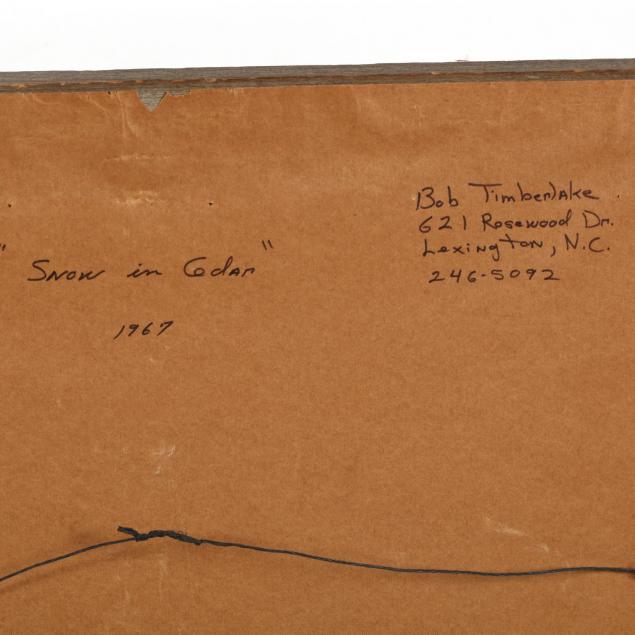 "Snow in Cedar"
1967
Bob Timberlake
621 Rosewood Dr.
Lexington, N.C.
246-5092